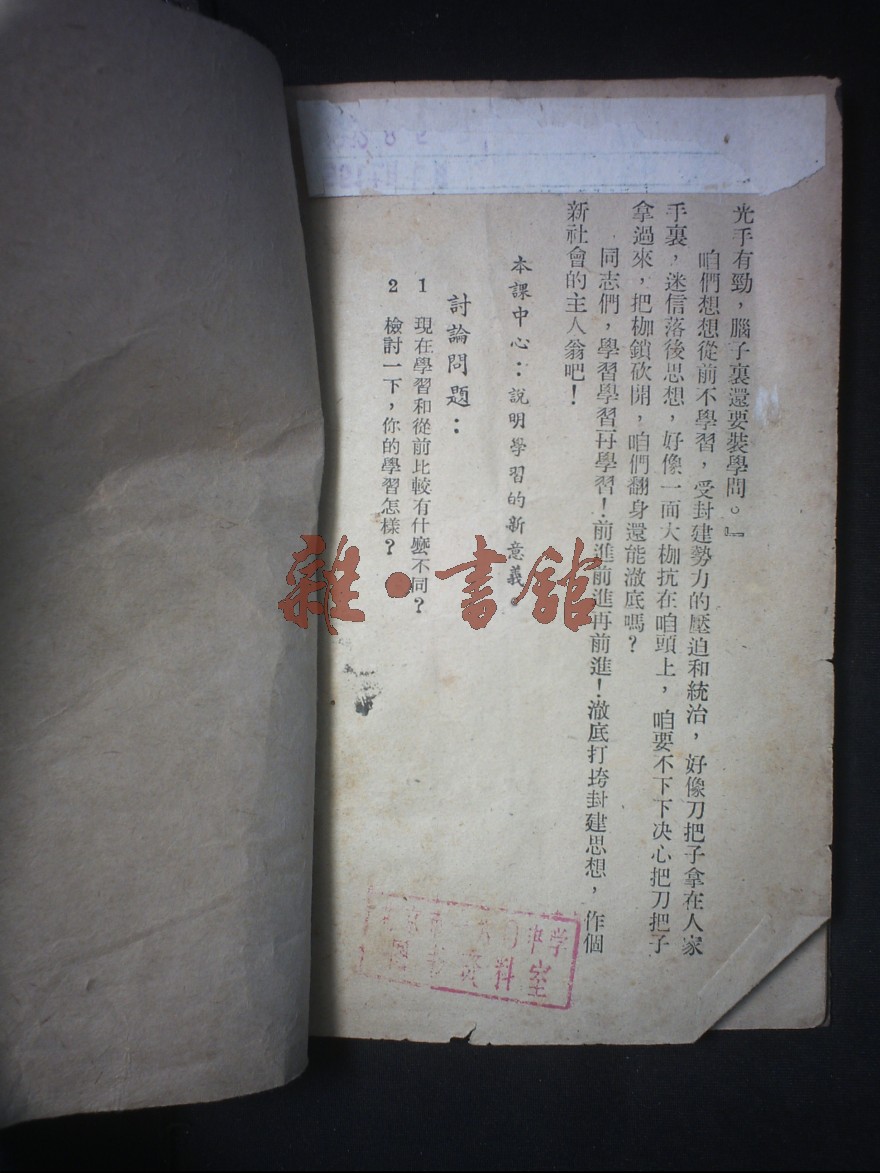 光手有勁，腦子裏還要裝學問。』
咱們想想從前不學習，受封建勢力的壓迫和統治，好像刀把子拿在人家
手裏，迷信落後思想，好像一面大枷抗在咱頭上，咱要不下下決心把刀把子
拿過來，把枷鎖砍開，咱們翻身還能澈底嗎？
同志們，學習學習再學習！前進前進再前進！澈底打垮封建思想，作個
新社會的主人翁吧！
本課中心：說明學習的新意義。
討論問題：
1 現在學習和從前比較有什麼不同？
2 檢討一下，你的學習怎樣？
雜·書館
中学
料室